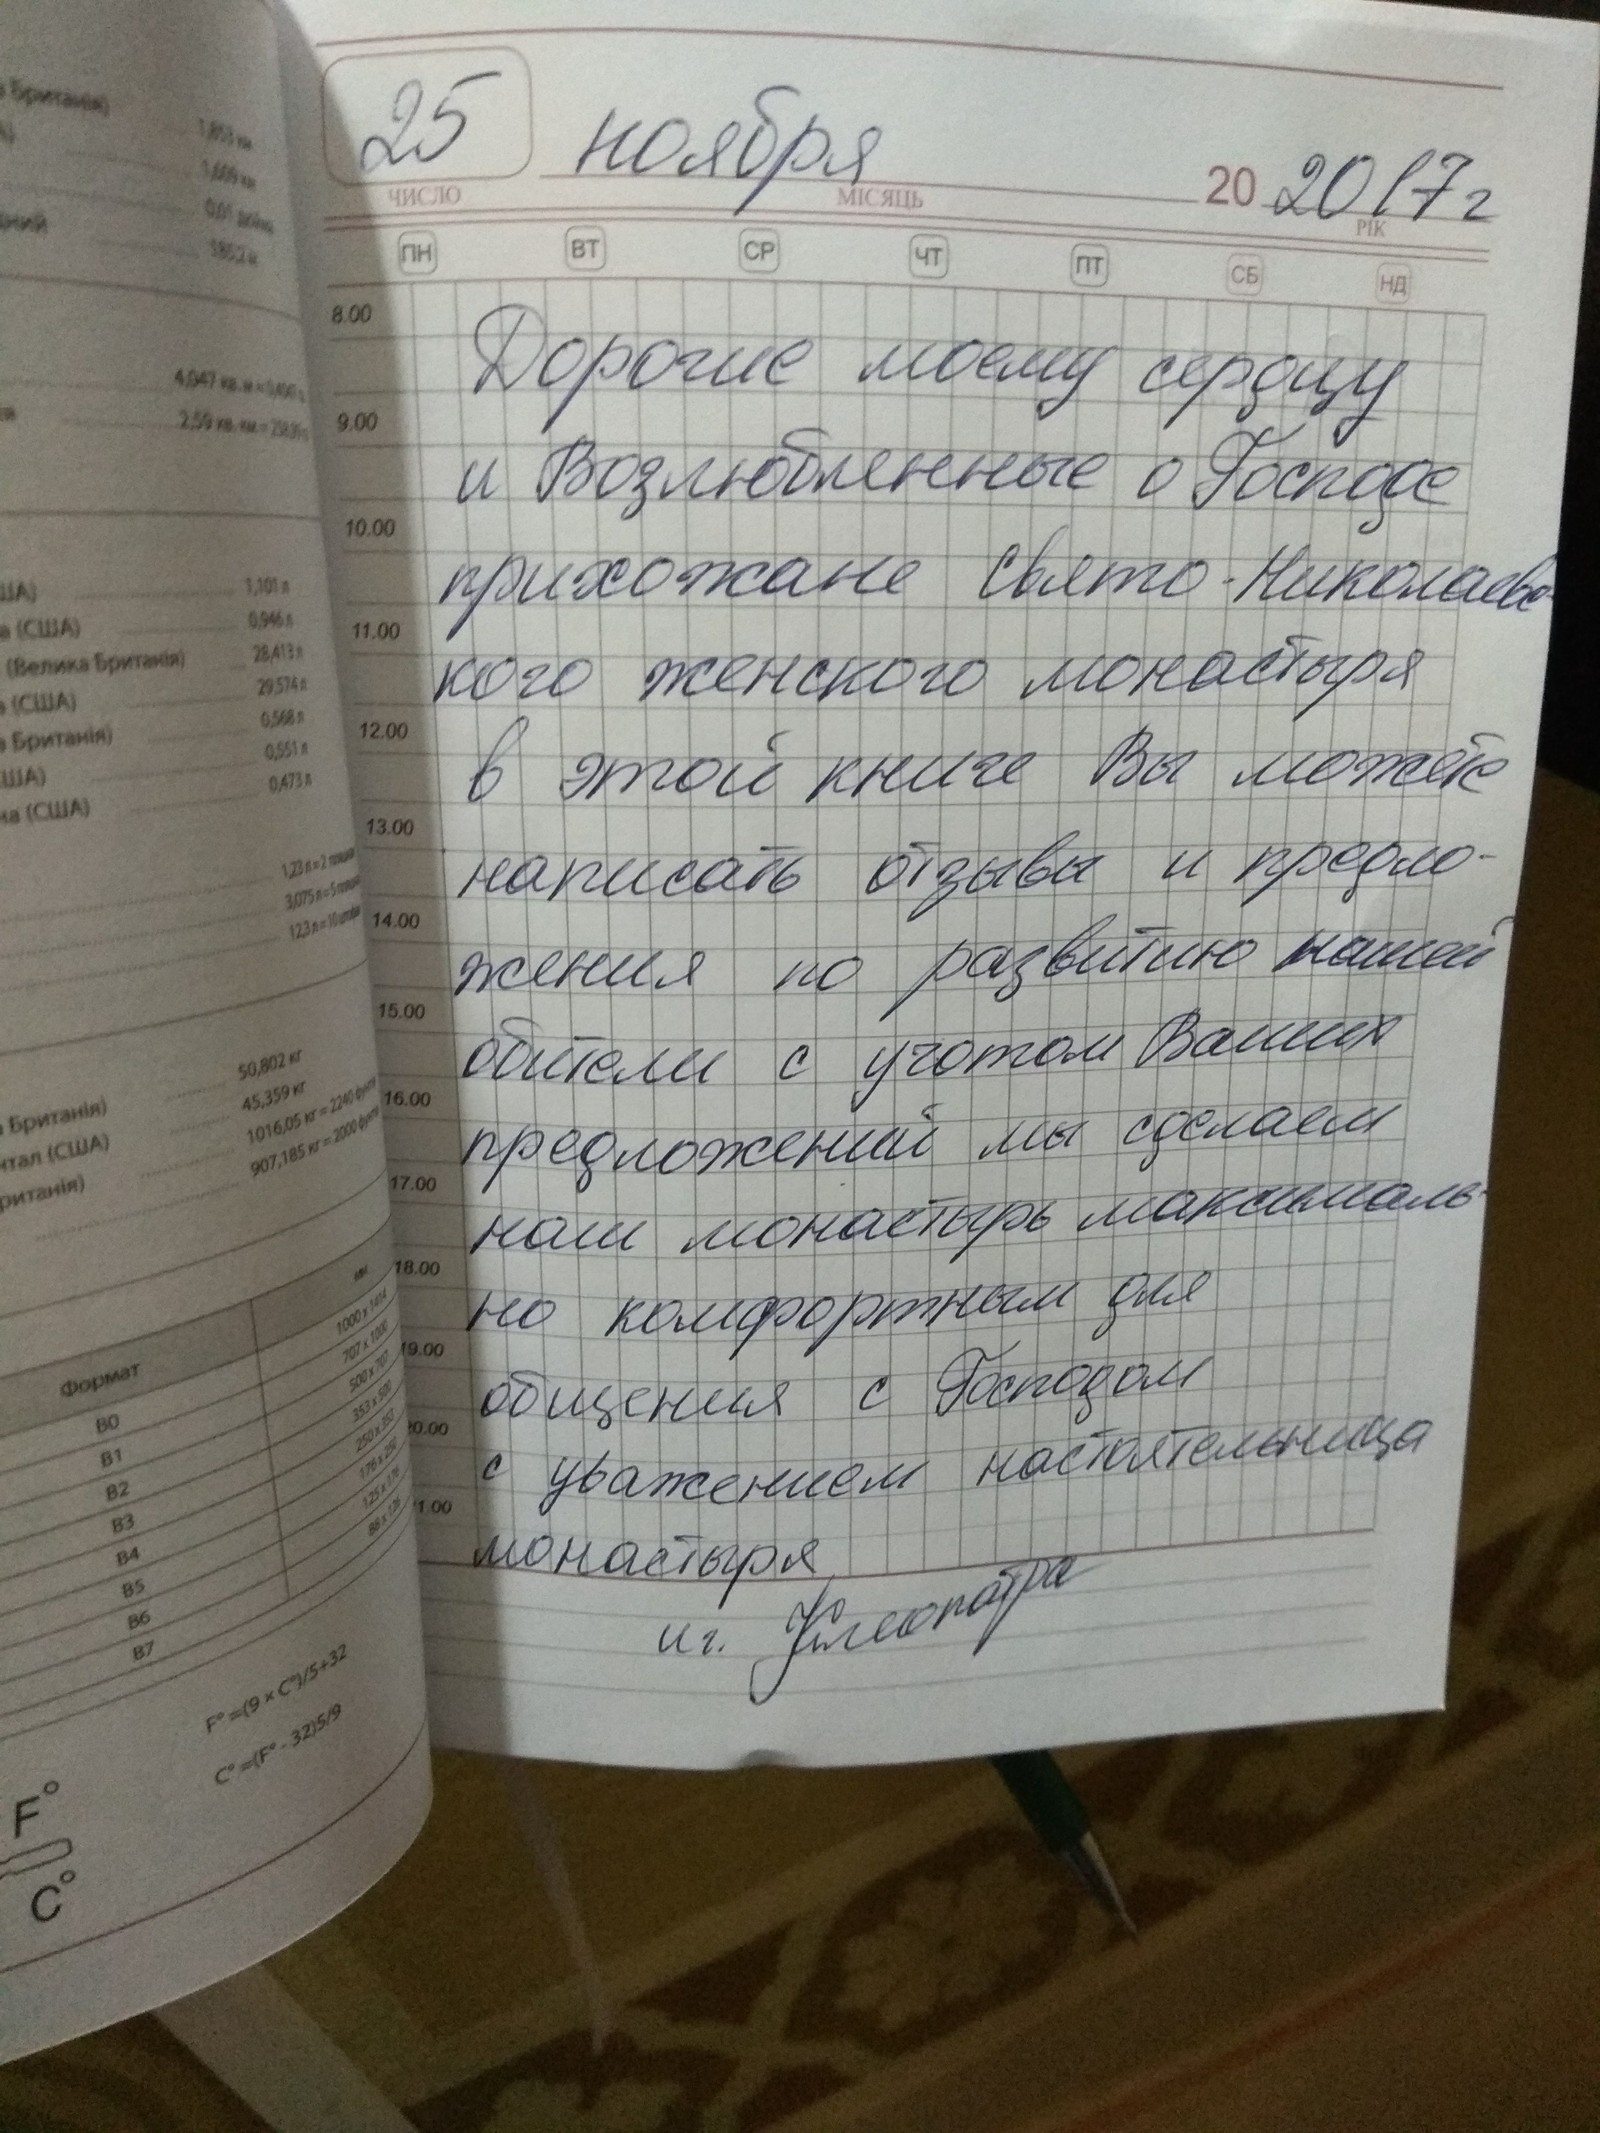 Британія)
1,853 км
1,609 км
0,01 дюйма
4,047 кв. м =
2,59 кв. км =
1,101 л
(США)
0,946 л
(Велика Британія)
28,413 л
(США)
29,574 л
Британія)
0,568 л
0,551 л
(США)
0,473 л
1,23 л = 2
3,075 л = 5
12,3 л = 10
50,802 кг
Британія)
45,359 кг
(США)
1016,05 кг = 2240 фунтів
907,185 кг = 2000 фунтів
Формат
мм
B0
1000 x 1414
B1
707 x 1000
B2
500 x 707
B3
353 x 500
B4
250 x 353
B5
176 x 250
B6
125 x 176
B7
88 x 125
F° =(9 × C°)/5+32
C° =(F° - 32)5/9
F°
C°
25 ноября 20 2017 г
ЧИСЛО МІСЯЦЬ РІК
ПН ВТ СР ЧТ ПТ СБ НД
8.00
Дорогие моему сердцу
9.00
и Возлюбленные о Господе
10.00
прихожане Свято-Николаевс-
11.00
кого женского монастыря
12.00
в этой книге Вы можете
13.00
написать отзывы и предло-
14.00
жения по развитию нашей
15.00
обители с учотом Ваших
16.00
предложений мы сделаем
17.00
наш монастырь максималь-
18.00
но комфортным для
19.00
общения с Господом
20.00
с уважением настоятельница
21.00
монастыря
иг. Клеопатра